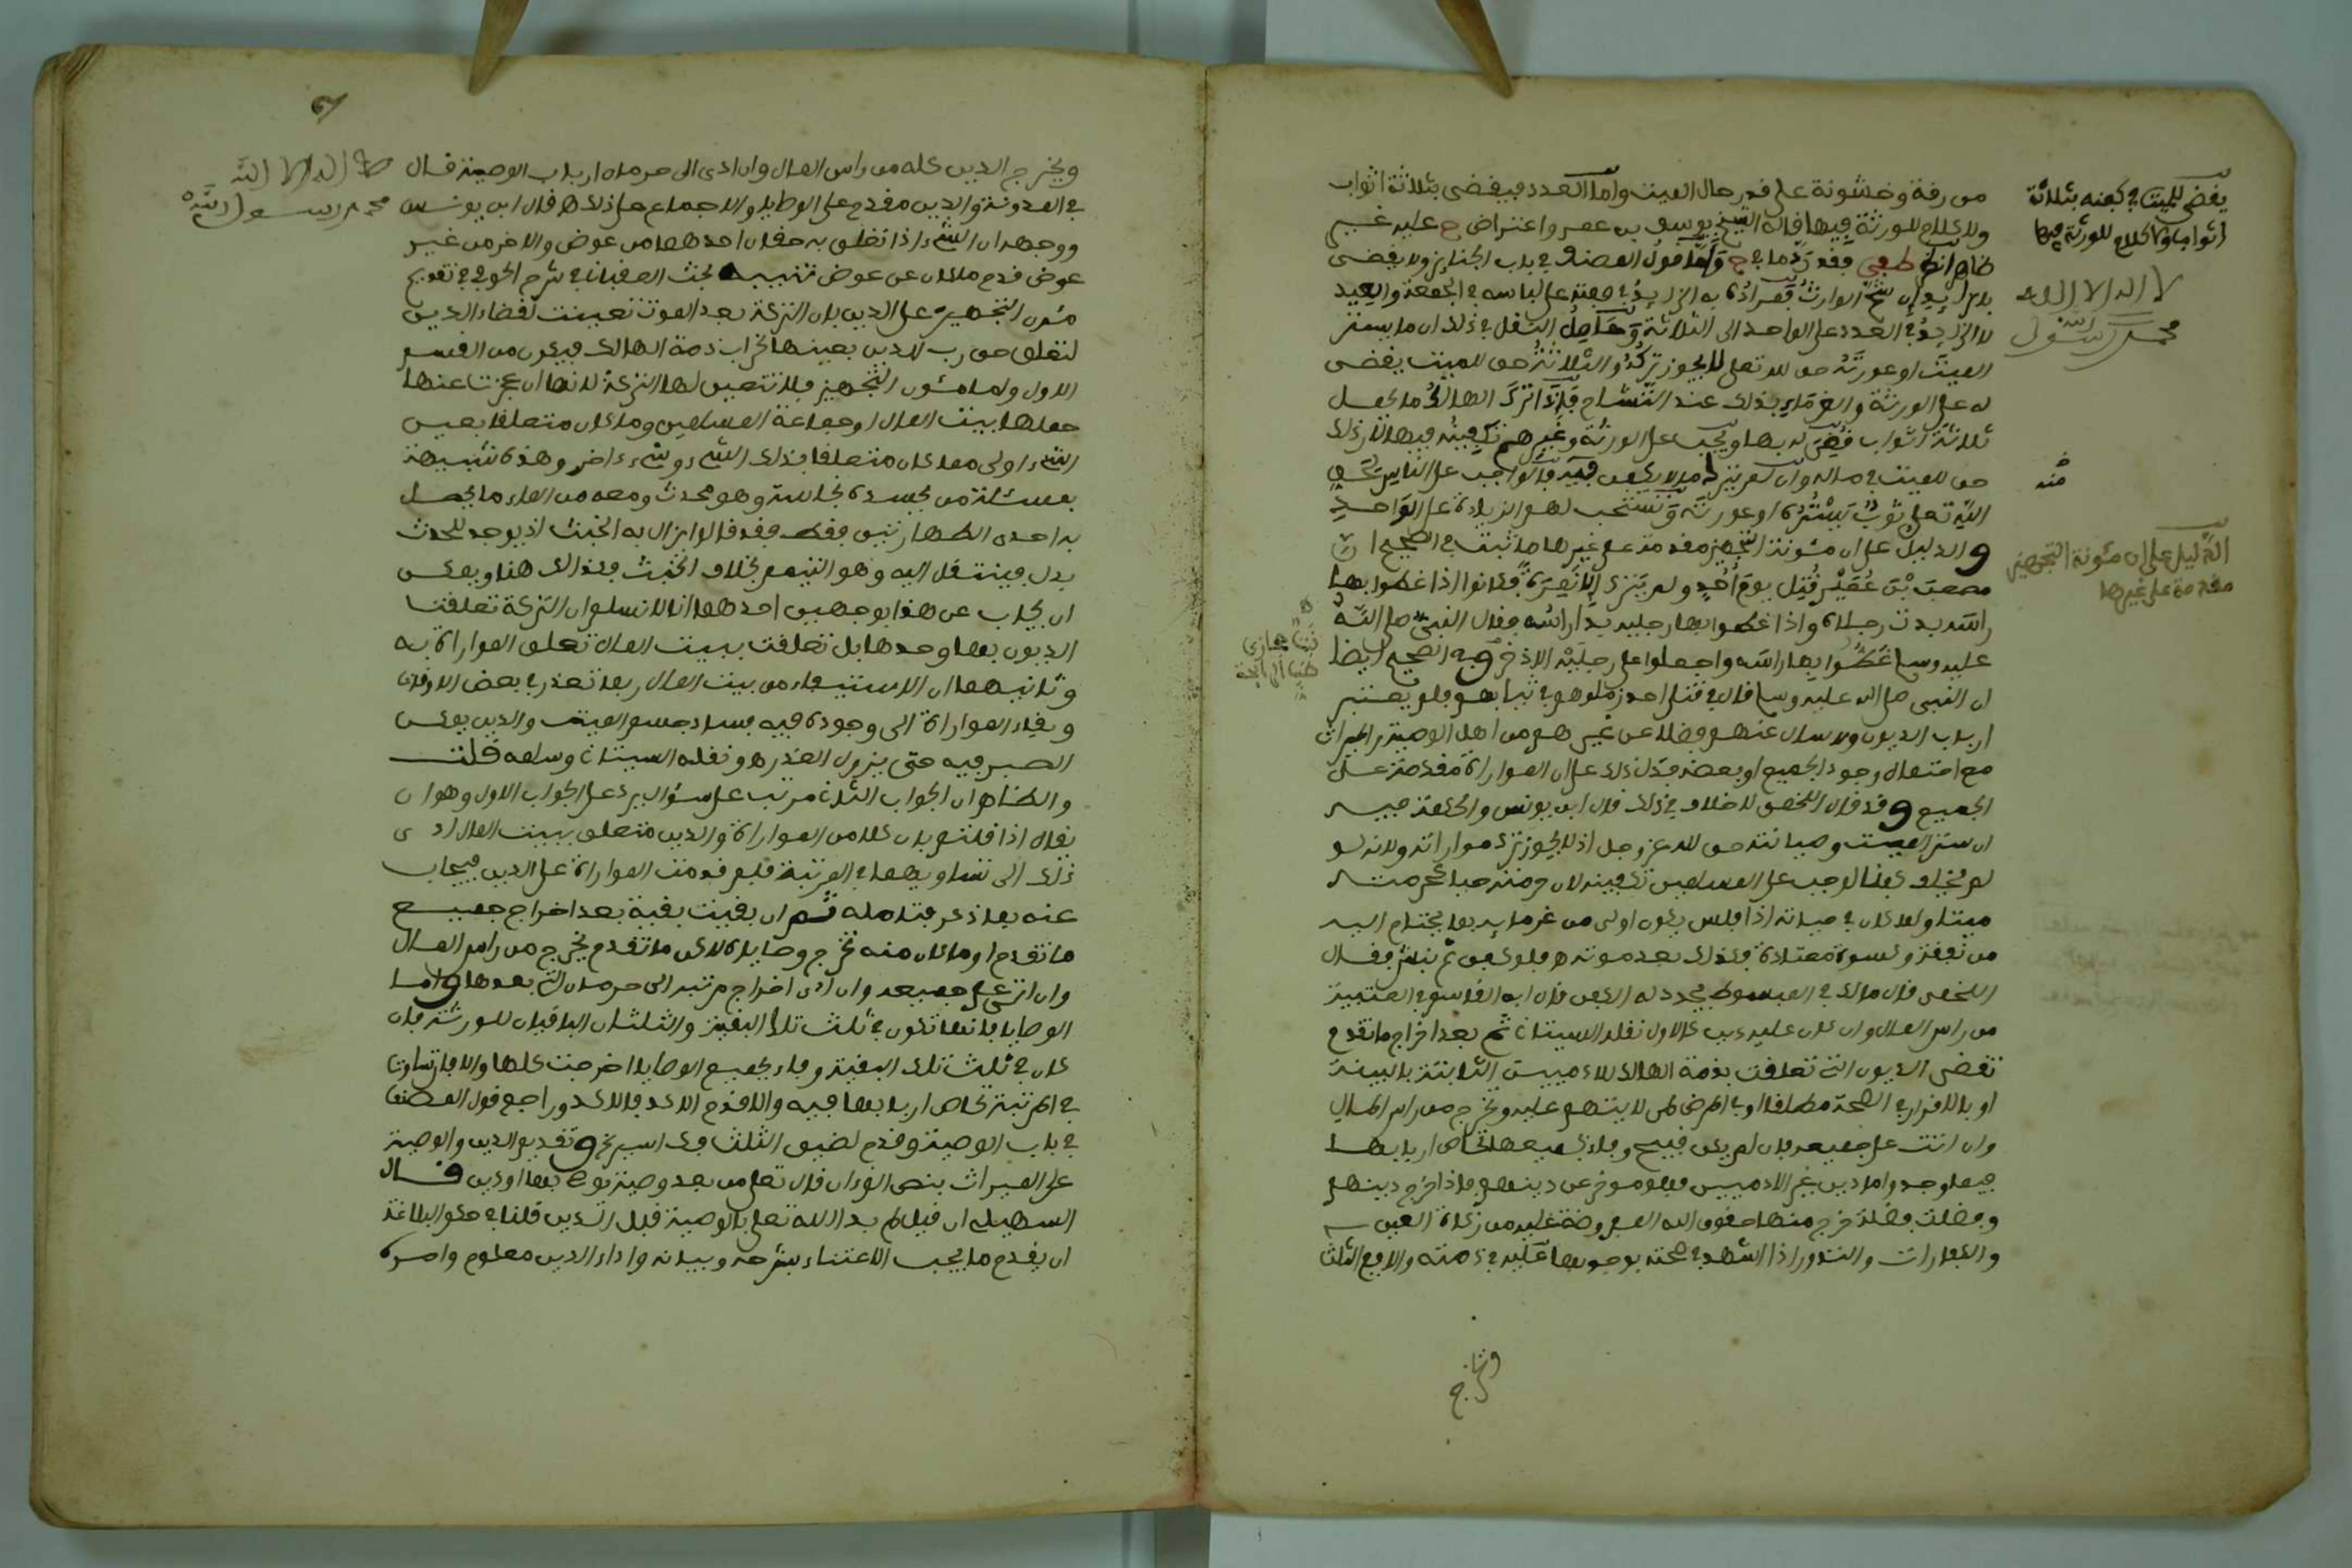 من رقة وخشونة على قدر حال الميت واما العدد فيقضى بثلاثة اثواب
ولا كلام للورثة فيها قاله الشيخ يوسف بن عمر واعتراض ح عليه غير
ظاهر انظر طفى فقد رد ما في ح واما قول المصنف في باب الجنائز ولا يقضى
بالزايد إن شح الوارث فمراده به الزايد في صفته على لباسه في الجمعة والعيد
لا الزايد في العدد على الواحد الى الثلاثة وحاصل النقل في ذلك ان ما يستر
الميت او عورته حق لله تعلى لا يجوز تركه والثلاثة حق للميت يقضى
له على الورثة والغرماء بذلك عند التشاح فاذا ترك الهالك ما يجعل
ثلاثة اثواب قضي له بها ويجب على الورثة وغيرهم تكفينه فيها لان ذلك
حق للميت في ماله وان لم يترك ما لا يكفن فيه فالواجب على الناس بحق
الله تعلى ثوب يستره او عورته ويستحب لهم الزيادة على الواحد
والدليل على ان مئونة التجهيز مقدمة على غيرها ما ثبت في الصحيح ان
مصعب بن عمير قتل يوم أحد ولم يترك إلا نمرة فكانوا اذا غطوا بها
راسه بدت رجلاه واذا غطوا بها رجليه بدا راسه فقال النبي صلى الله
عليه وسلم غطوا بها راسه واجعلوا على رجليه الاذخر وفي الصحيح ايضا
ان النبي صلى الله عليه وسلم قال في قتلى احد زملوهم في ثيابهم فلم يعتبر
ارباب الديون ولا سال عنهم فضلا عن غيرهم من اهل الوصية والميراث
مع احتمال وجود الجميع او بعضه فدل ذلك على ان المواراة مقدمة على
الجميع وقد قال اللخمى لا خلاف في ذلك قال ابن يونس والحكمة فيه
ان ستر الميت وصيانته حق لله عز وجل اذ لا يجوز ترك مواراته ولانه لو
لم يخلف كفنا لوجب على المسلمين تكفينه لان حرمته حيا كحرمته
ميتا ولما كان في حياته اذا فلس يكون اولى من غرمايه بما يحتاج اليه
من نفقة وكسوة معتادة فكذلك بعد موته ه فلو كفن ثم نبش فقال
اللخمى قال مالك في المبسوط يجدد له الكفن قال ابن القاسم في العتبية
من راس المال وان كان عليه دين كالاول نقله البستان ثم بعد اخراج ما تقدم
تقضى الديون التي تعلقت بذمة الهالك للادميين الثابتة بالبينة
او بالاقرار في الصحة مطلقا او في المرض لمن لا يتهم عليه وتخرج من راس المال
وان اتت على جميعه فان لم يكن فيه وفاء بجميعها تحاص اربابها
فيما وجد واما دين غير الادميين فهو موخر عن دينهم فاذا اخرج دينهم
وفضلت فضلة خرج منها حقوق الله المفروضة عليه من زكاة العين
والكفارات والنذور اذا اشهد في صحته بوجوبها عليه في ذمته والا فمن الثلث
يقضى للميت في كفنه بثلاثة
اثواب ولا كلام للورثة فيها
لا اله الا الله
محمد رسول الله
منه
الدليل على ان مئونة التجهيز
مقدمة على غيرها
ويخرج الدين كله من راس المال وان ادى الى حرمان ارباب الوصية قال
في المدونة والدين مقدم على الوصايا والاجماع على ذلك ه قال ابن يونس
ووجهه ان الشيء اذا تعلق به حقان احدهما من عوض والاخر من غير
عوض قدم ما كان عن عوض تنبيه بحث العقباني في شرح الحوفي في تقديم
مئون التجهيز على الدين بان التركة بعد الموت تعينت لقضاء الدين
لتعلق حق رب الدين بعينها لخراب ذمة الهالك فيكون من القسم
الاول واما مئون التجهيز فلا تتعين لها التركة لانها ان عجزت عنها
حملها بيت المال او جماعة المسلمين وما كان متعلقا بعين
الشيء اولى مما كان متعلقا بذلك الشيء وشيء ءاخر وهذه شبيهة
بمسئلة من بجسده نجاسة وهو محدث ومعه من الماء ما يحصل
به احدى الطهارتين فقط فقد قالوا يزال به الخبث اذ يوجد للحدث
بدل فينتقل اليه وهو التيمم بخلاف الخبث فكذلك هنا ويمكن
ان يجاب عن هذا بوجهين احدهما انا لا نسلم ان التركة تعلقت
الديون بها وحدها بل تعلقت ببيت المال تعلق المواراة به
وثانيهما ان الاستيفاء من بيت المال ربما تعذر في بعض الاوقات
وبقاء المواراة الى وجوده فيه فساد جسم الميت والدين يمكن
الصبر فيه حتى يزول العذر ه ونقله البستان وسلمه قلت
والظاهر ان الجواب الثاني مرتب على سؤال يرد على الجواب الاول وهو ان
يقال اذا قلتم بان كلا من المواراة والدين متعلق ببيت المال ادى
ذلك الى تساويهما في المرتبة فلم قدمت المواراة على الدين فيجاب
عنه بما ذكر فتامله ثم ان بقيت بقية بعد اخراج جميع
ما تقدم او ما كان منه تخرج وصاياه لاكن ما تقدم يخرج من راس المال
وان اتى على جميعه وان ادى اخراج مرتبة الى حرمان التي بعدها واما
الوصايا فانها تكون في ثلث تلك البقية والثلثان الباقيان للورثة فان
كان في ثلث تلك البقية وفاء بجميع الوصايا اخرجت كلها والا فان تساوتا
في المرتبة تحاص اربابها فيه والا قدم الاكد فالاكد وراجع قول المصنف
في باب الوصية وقدم لضيق الثلث فك اسير الخ وتقديم الدين والوصية
على الميراث بنص القرءان قال تعلى من بعد وصية توصون بها او دين قال
السهيلي ان قيل لم بدا الله تعلى بالوصية قبل الدين قلنا في حكم البلاغة
ان يقدم ما يجب الاعتناء بشرحه وبيانه واداء الدين معلوم وامره
لا اله الا الله
محمد رسول الله